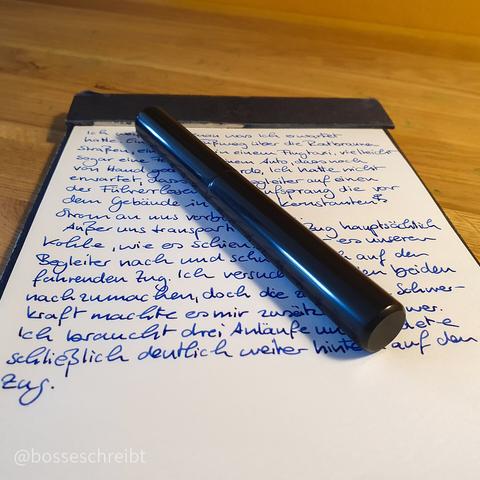 Ich man was ich erwartet
hatte. Ein Fußweg über die Ratbraunen
Straßen, ein einem Flugtaxi, vielleicht
sogar eine einem Auto, dass noch
von Hand Ich hatte nicht
erwartet, dass Begleiter auf einen
der Führerlosen aufsprang die vor
dem Gebäude in
strom an uns vorbei
Außer uns transpor Zug hauptsächlich
Kohle, wie es schien es unseren
Begleiter nach und auf den
fahrenden Zug. Ich versuch beiden
nachzumachen, doch die Schwer-
kraft machte es mir zusätz wer.
Ich braucht drei Anläufe un dete
schließlich deutlich weiter hinten auf den
Zug.
@bosseschreibt